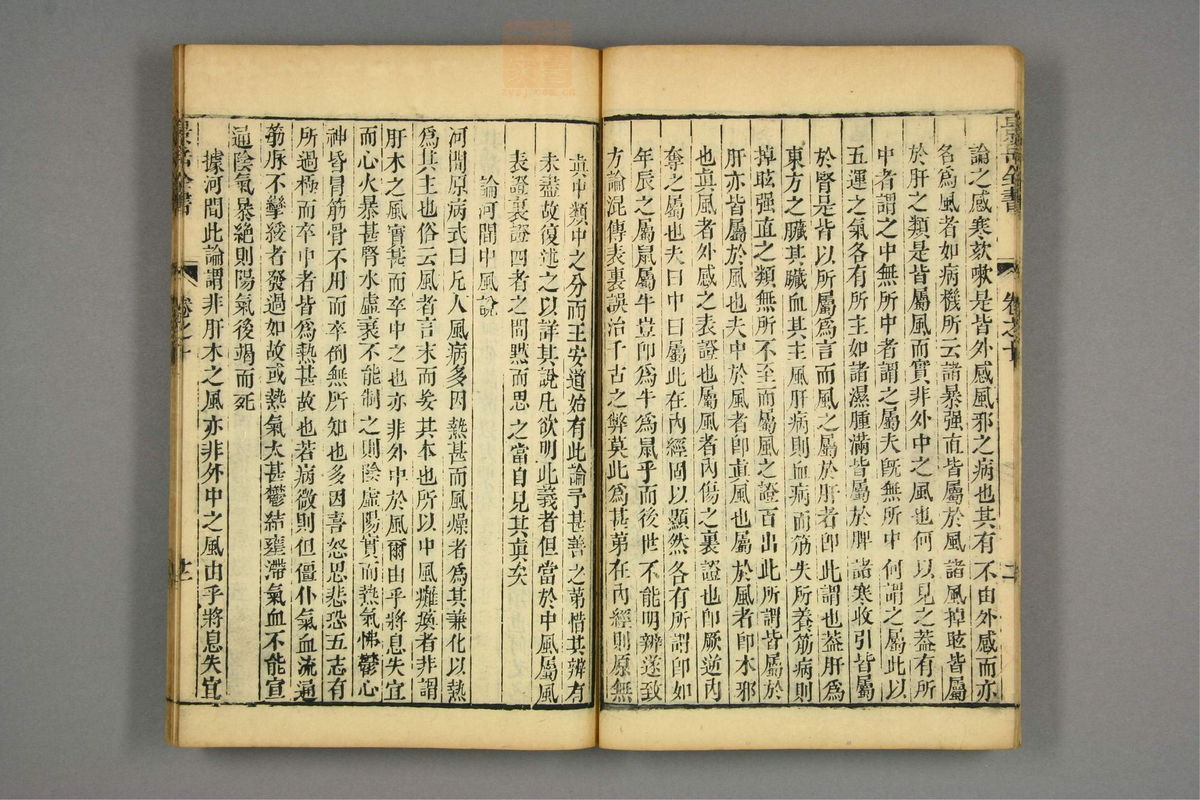 論之感寒欬嗽是皆外感風邪之病也其有不由外感而亦
名爲風者如病機所云諸暴强直皆屬於風諸風掉眩皆屬
於肝之類是皆屬風而實非外中之風也何以見之葢有所
中者謂之中無所中者謂之屬夫旣無所中何謂之屬此以
五運之氣各有所主如諸濕腫滿皆屬於脾諸寒收引皆屬
於腎是皆以所屬爲言而風之屬於肝者卽此謂也葢肝爲
東方之臟其臟血其主風肝病則血病而筋失所養筋病則
掉眩强直之類無所不至而屬風之證百出此所謂皆屬於
肝亦皆屬於風也夫中於風者卽眞風也屬於風者卽木邪
也眞風者外感之表證也屬風者內傷之裏證也卽厥逆內
奪之屬也夫曰中曰屬此在內經固以顯然各有所謂卽如
年辰之屬鼠屬牛豈卽爲牛爲鼠乎而後世不能明辨遂致
方論混傳表裏誤治千古之弊莫此爲甚第在內經則原無
眞中類中之分而王安道始有此論予甚善之第惜其辨有
未盡故復述之以詳其說凡欲明此義者但當於中風屬風
表證裏證四者之間默而思之當自見其眞矣
論河間中風說
河間原病式曰凡人風病多因熱甚而風燥者爲其兼化以熱
爲其主也俗云風者言末而妄其本也所以中風癱瘓者非謂
肝木之風實甚而卒中之也亦非外中於風爾由乎將息失宜
而心火暴甚腎水虛衰不能制之則陰虛陽實而熱氣怫鬱心
神昏冒筋骨不用而卒倒無所知也多因喜怒思悲恐五志有
所過極而卒中者皆爲熱甚故也若病微則但僵仆氣血流通
筋脈不攣緩者發過如故或熱氣太甚鬱結壅滯氣血不能宣
通陰氣暴絶則陽氣後竭而死
據河間此論謂非肝木之風亦非外中之風由乎將息失宜
景岳全書
卷之十
景岳全書
卷之十